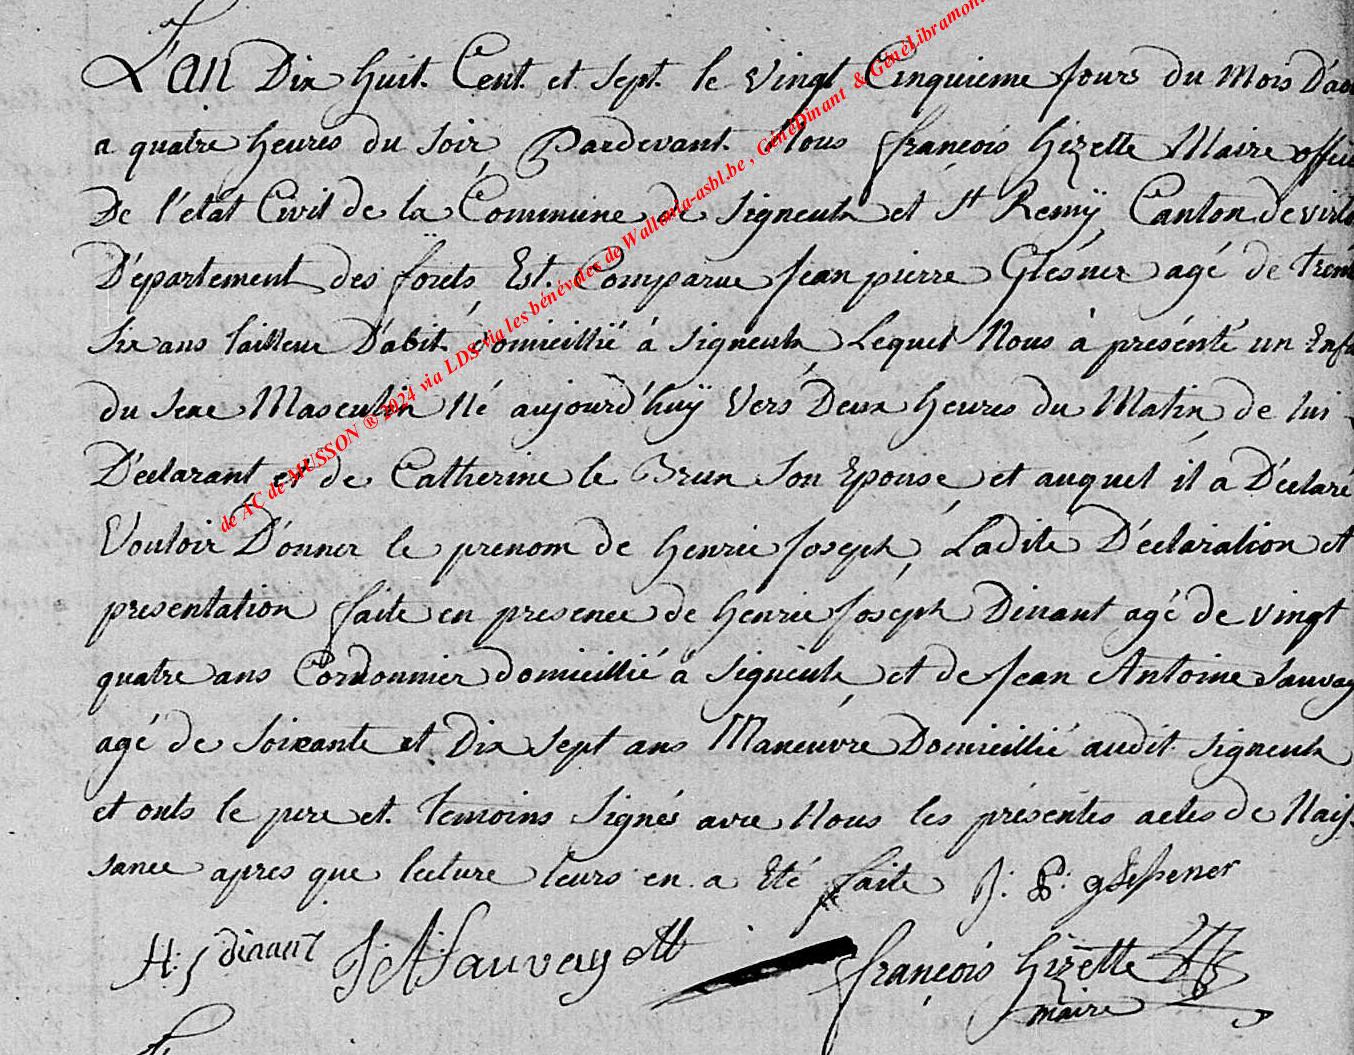 L'an Dix huit Cent et sept le vingt Cinquieme Jours du Mois D'aou
a quatre heures du soir Pardevant Nous françois hizette Maire offici
De l'état Civil de la Commune de Signeulx et St Remÿ Canton de virto
Département des forêts Est Comparue Jean pierre Glésner agé de trent
Six ans tailleur D'abit domicillié à Signeulx Lequel Nous à présénté un Enfa
du sexe Masculin Né aujourd'huÿ Vers Deux heures du Matin de lui
Déclarant et de Catherine le Brun Son Epouse et auquel il a Déclaré
Vouloir Donner le prenom de henrie Joseph Ladite Déclaration et
presentation faite en presence de henrie Joséph Dinant agé de vingt
quatre ans Cordonnier domicillié a Signeulx et de Jean Antoine Sauvag
agé de Soixante et Dix Sept ans Maneuvre Domicillié audit Signeulx
et onts le pere et temoins Signés avec Nous les présentes actes de Nais
sance apres que lecture leurs en a Eté faite J: P: gleßener
H: J dinant J: A: Sauvag françois hizette
maire
de AC de MUSSON ® 2024 via LDS via les bénévoles de Wallonia-asbl.be , GénéDinant & GénéLibramon